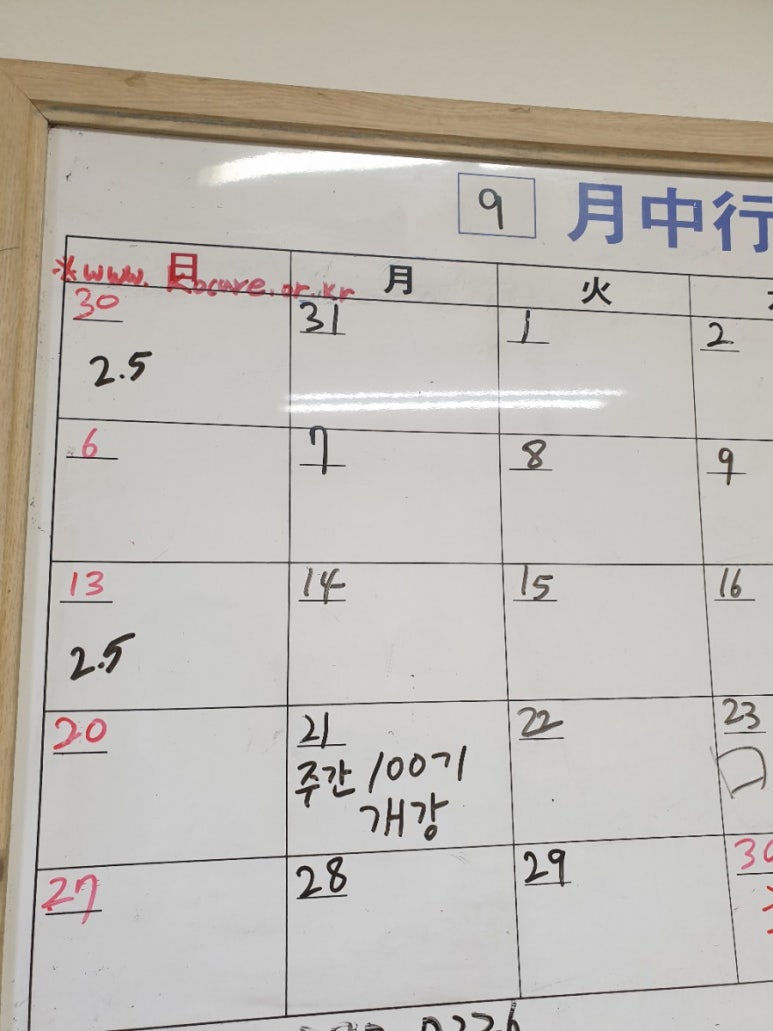 9 月中行
日 月 火
※www. kbcare.or.kr
30 31 1 2
2.5
6 7 8 9
13 14 15 16
2.5
20 21 22 23
주간 100기
개강
27 28 29 30